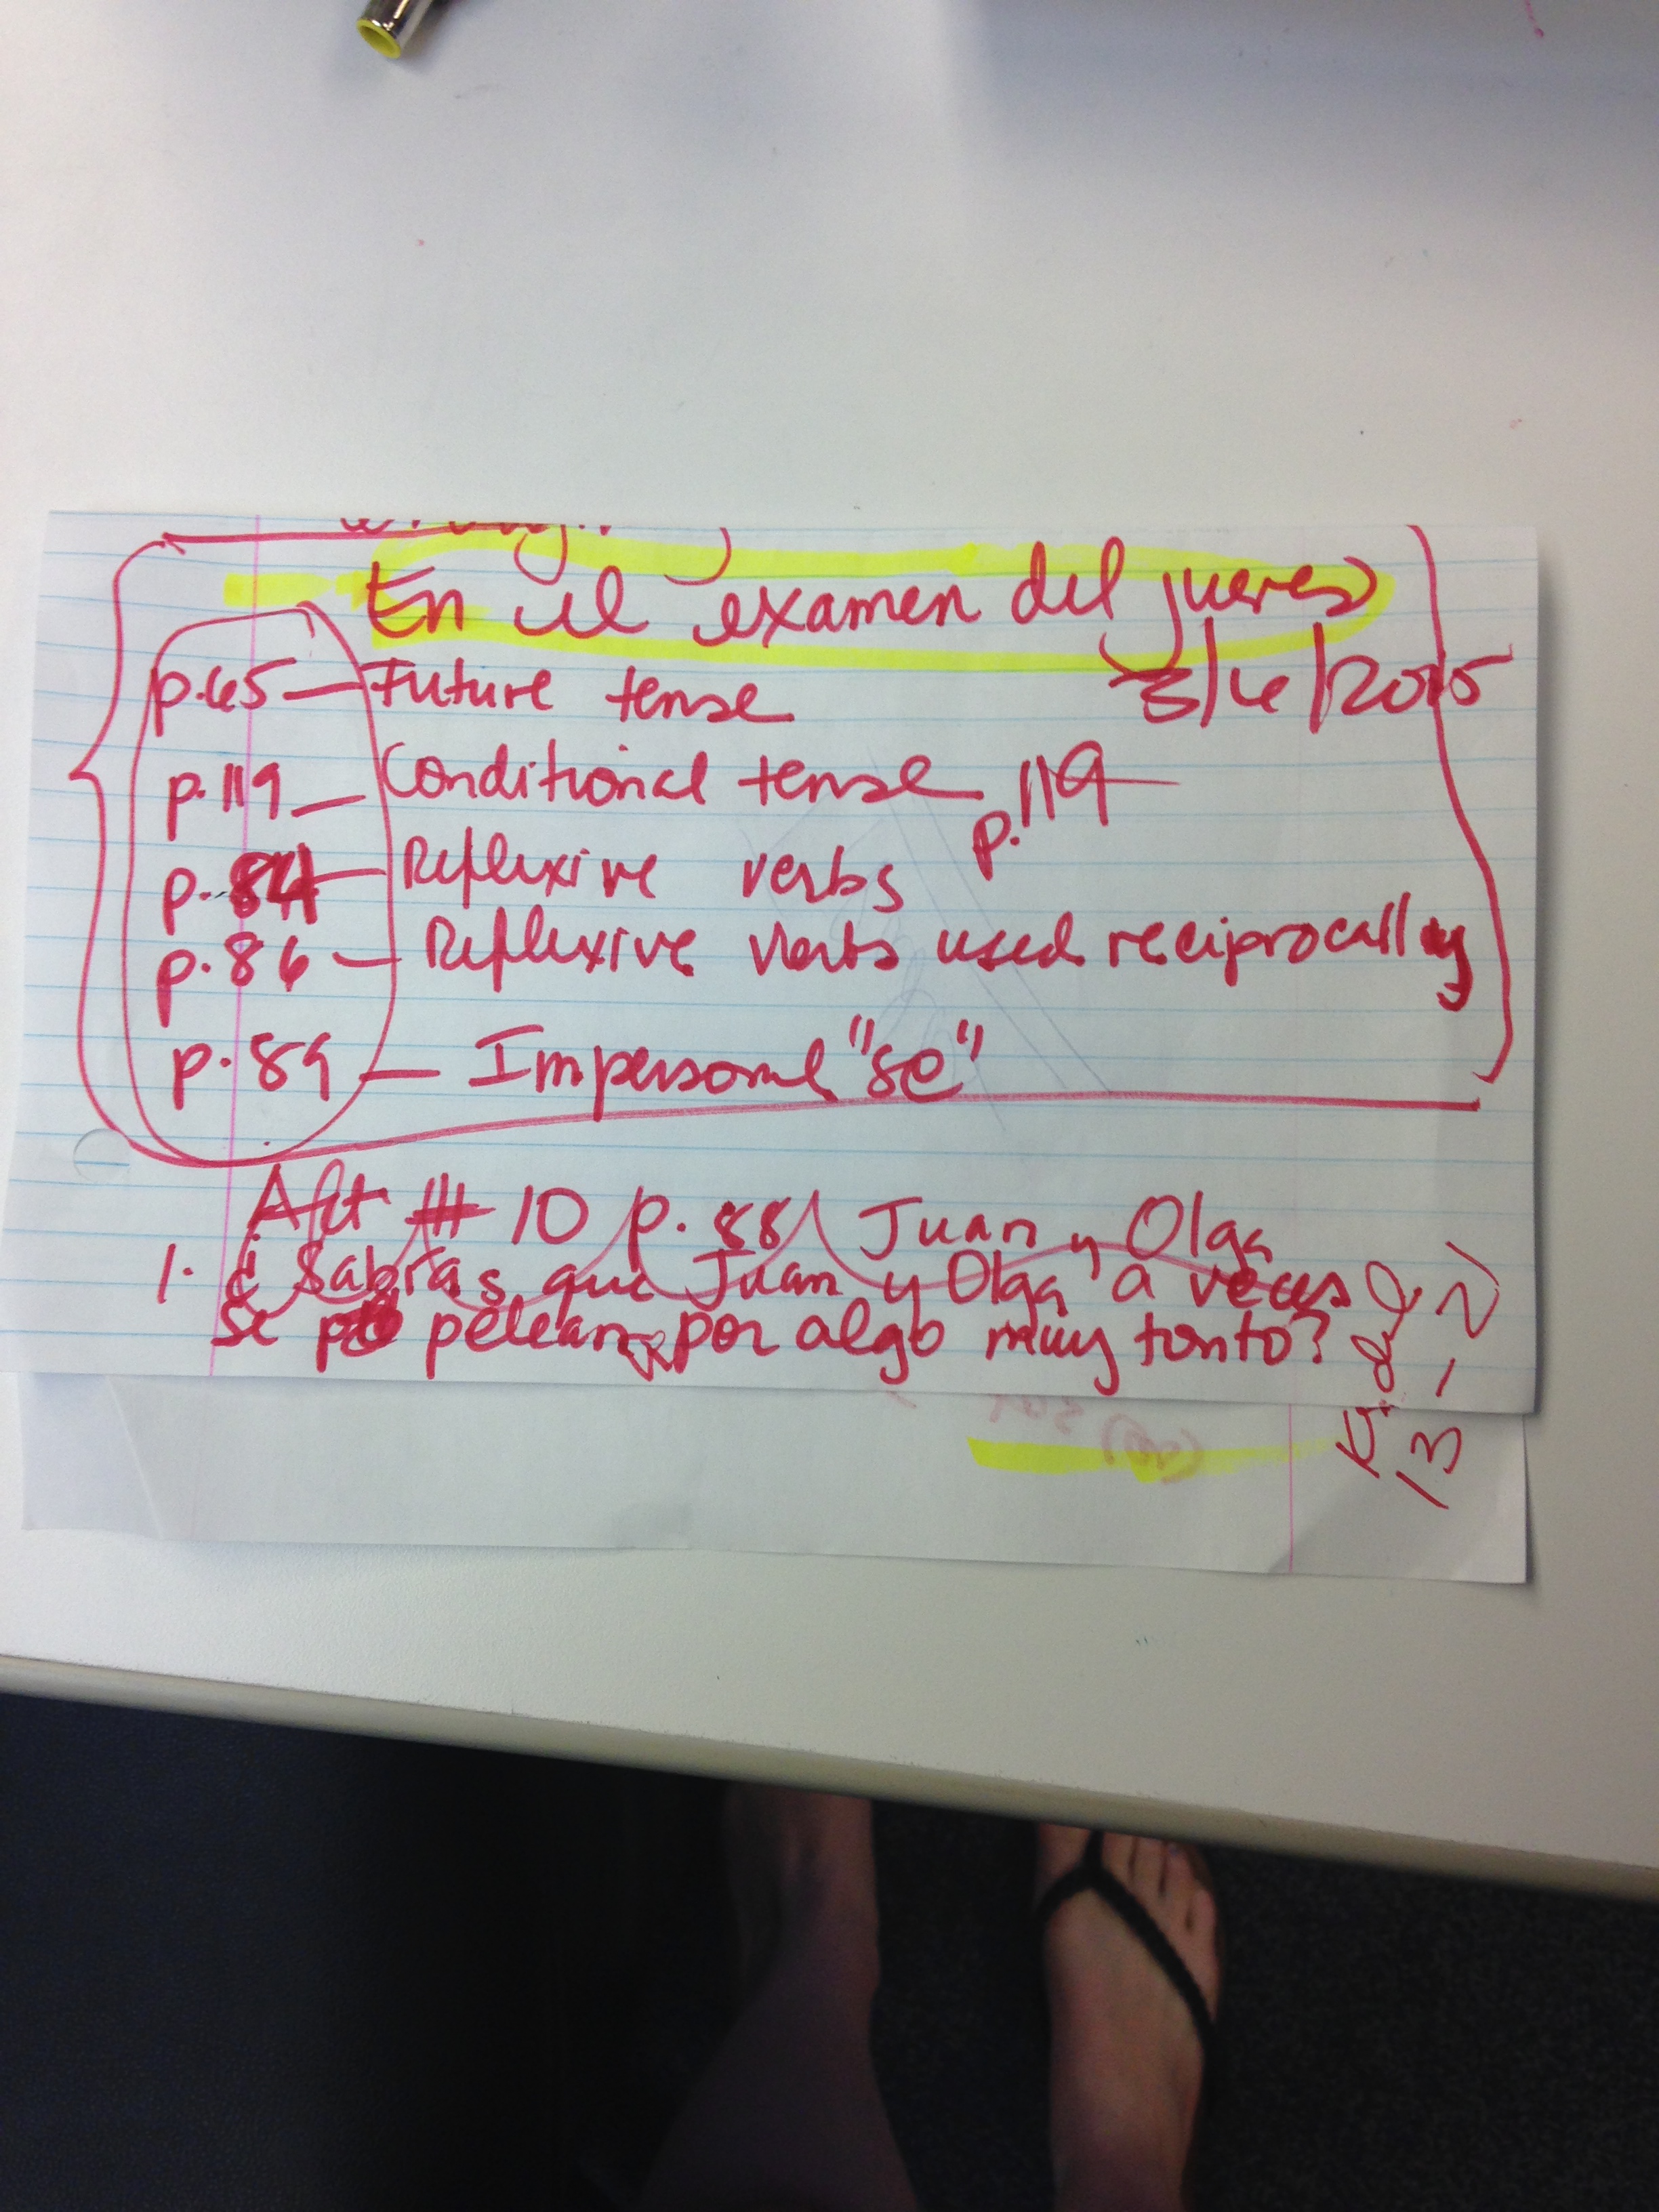 En el examen del jueves
3/6/2015
p.65 — Future tense
p.119 — Conditional tense p.119
p.84 — Reflexive verbs
p.86 — Reflexive verbs used reciprocally
p.89 — Impersonal "se"
Act # 10 p.88 Juan y Olga
1. ¿Sabías que Juan y Olga a veces
se pelean por algo muy tonto?